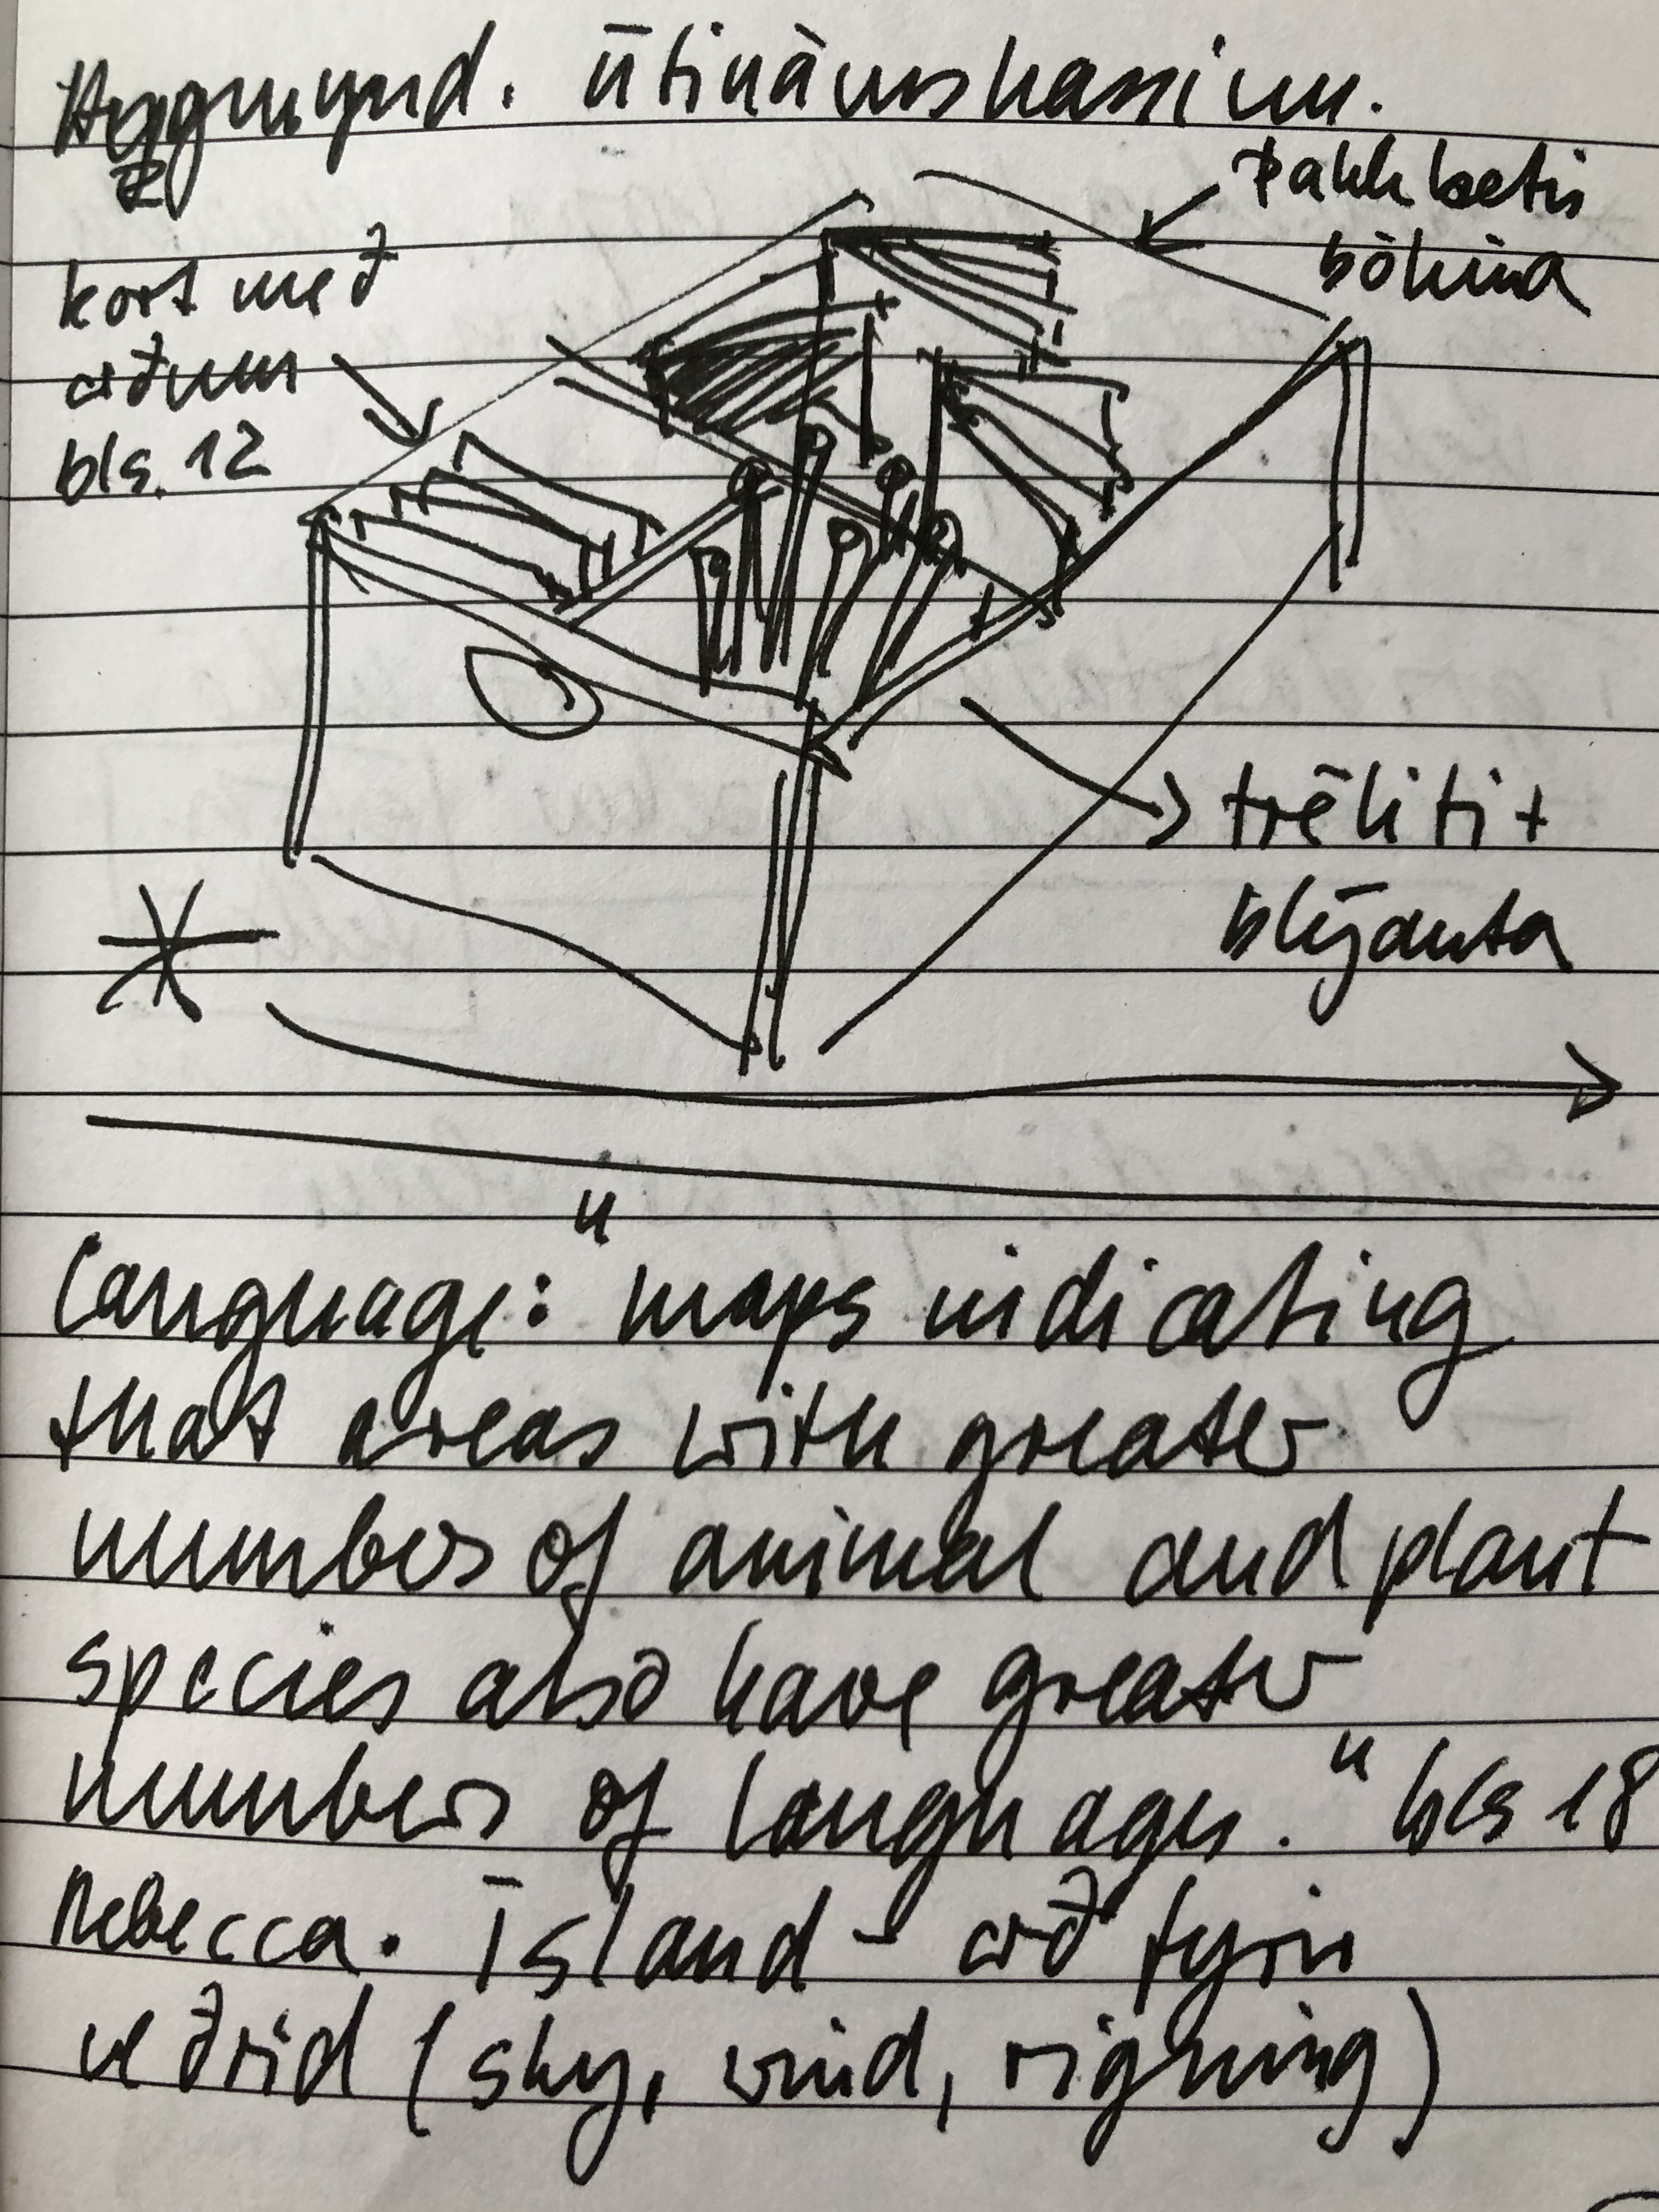 Hugmynd. Útinámskassinn.
kort með
orðum
bls. 12
Þakkbetis
bókina
trēliti +
blýanta
Language: "maps indicating
that areas with greater
numbers of animal and plant
species also have greater
numbers of languages." bls 18
Rebecca. Ísland - orð fyrir
veðrid (sky, vind, rigning)